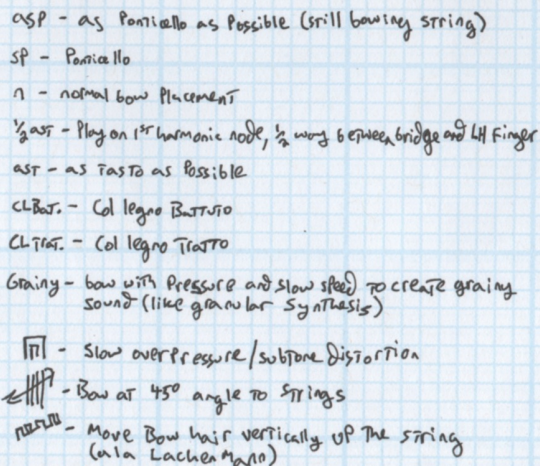 asp - as Ponticello as Possible (still bowing string)
sp - Ponticello
n - normal bow Placement
½ ast - Play on 1st harmonic node, ½ way between bridge and LH Finger
ast - as Tasto as Possible
CLBat. - Col legno Battuto
CLTrat. - Col legno Tratto
Grainy - bow with Pressure and slow speed to create grainy
sound (like granular Synthesis)
- Slow overPressure/subtone Distortion
- Bow at 45° angle to Strings
- Move Bow hair vertically up the string
(ala Lachenmann)